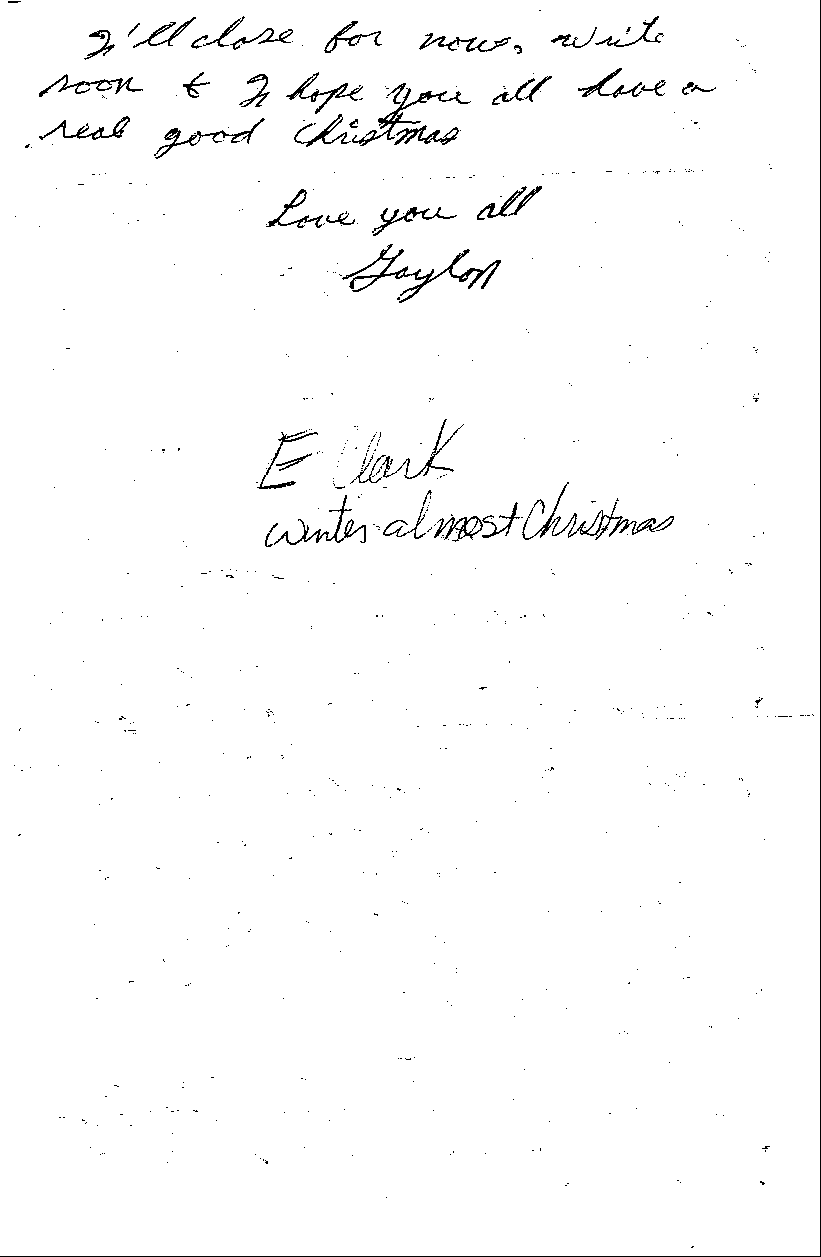 I'll close for now, write
soon & I hope you all have a
real good Christmas
Love you all
Gaylon
E Clark
winter almost Christmas